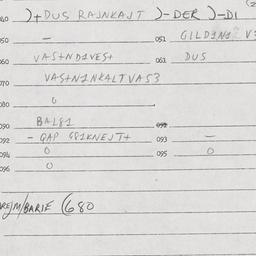 040 )+DUS RAJNKAJT )-DER )-DI
050 — 051 GILDINI
060 VAS+ND1VES+ 061 DUS
070 VAS+N1NKALTVAS3
080 0
090 BAL81
092 - GAP GR1KNEJT+ 093 —
094 0 095 0
096 0
/M/BARIE (680